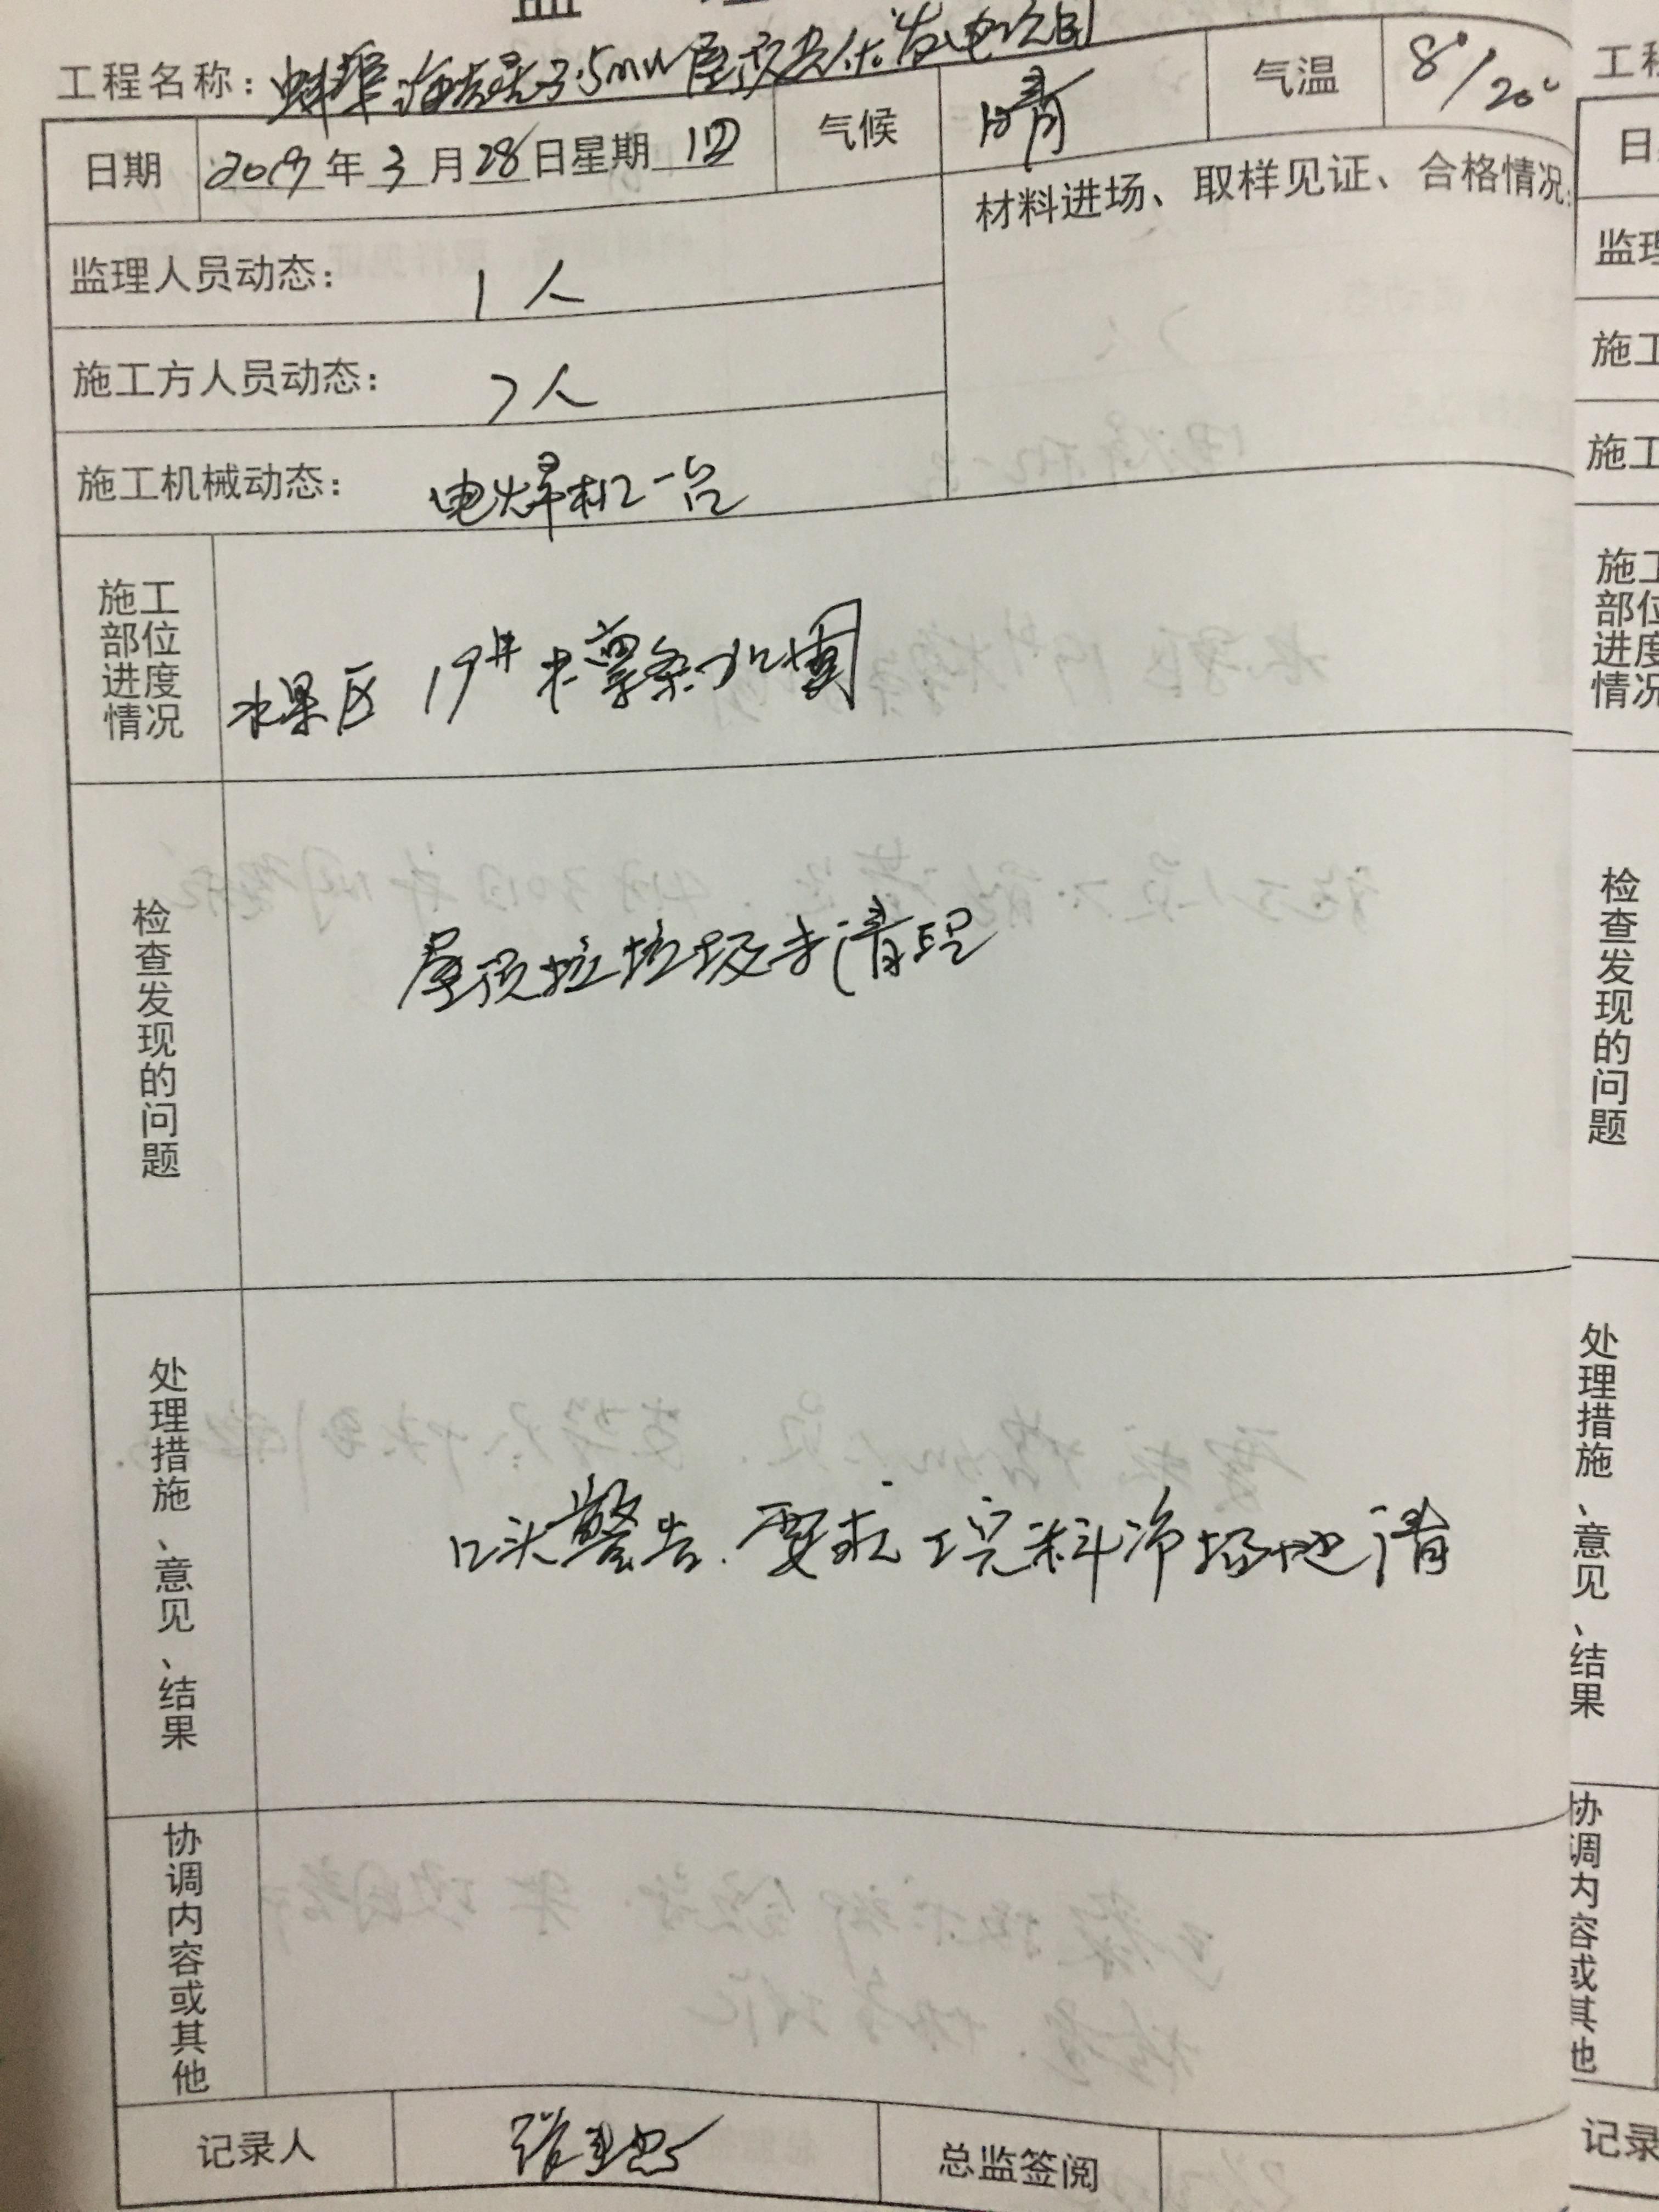 监 理
工程名称：蚌埠海吉星3.5mw屋顶光伏发电项目
日期 2019年3月28日星期四 气候 晴 气温 8°/20°
材料进场、取样见证、合格情况:
监理人员动态： 1人
施工方人员动态： 7人
施工机械动态： 电焊机一台
施工部位进度情况 水果区 19# 木檩条加固
检查发现的问题 屋顶垃圾未清理
处理措施、意见、结果 口头警告.要求工完料净场地清
协调内容或其他
记录人 张
总监签阅
工程
日
监理
施工
施工
施工部位进度情况
检查发现的问题
处理措施、意见、结果
协调内容或其他
记录